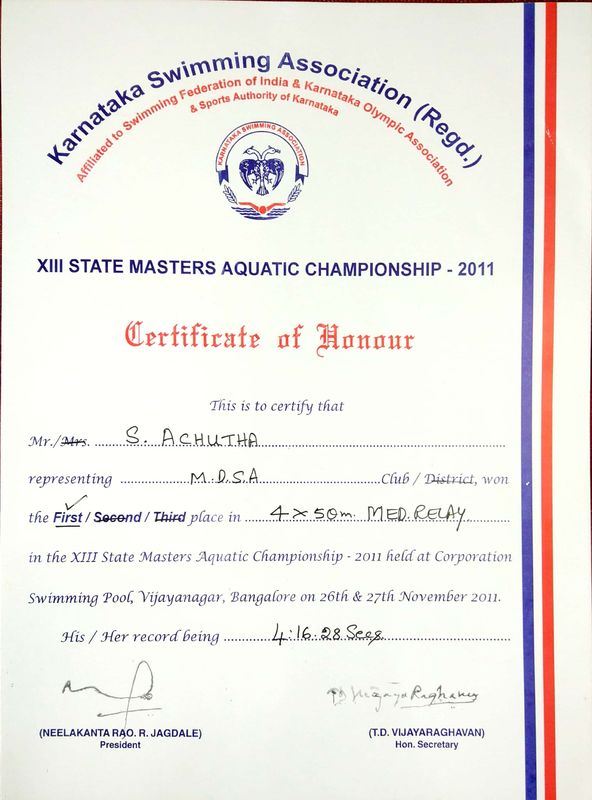 Karnataka Swimming Association (Regd.)
Affiliated to Swimming Federation of India & Karnataka Olympic Association
& Sports Authority of Karnataka
KARNATAKA SWIMMING ASSOCIATION
XIII STATE MASTERS AQUATIC CHAMPIONSHIP - 2011
Certificate of Honour
This is to certify that
Mr./Mrs. S. ACHUTHA
representing M.D.S.A Club / District, won
the First / Second / Third place in 4×50m. MED.RELAY
in the XIII State Masters Aquatic Championship - 2011 held at Corporation
Swimming Pool, Vijayanagar, Bangalore on 26th & 27th November 2011.
His / Her record being 4:16.28 Secs
TD VijayaRaghavan
(NEELAKANTA RAO. R. JAGDALE) (T.D. VIJAYARAGHAVAN)
President Hon. Secretary